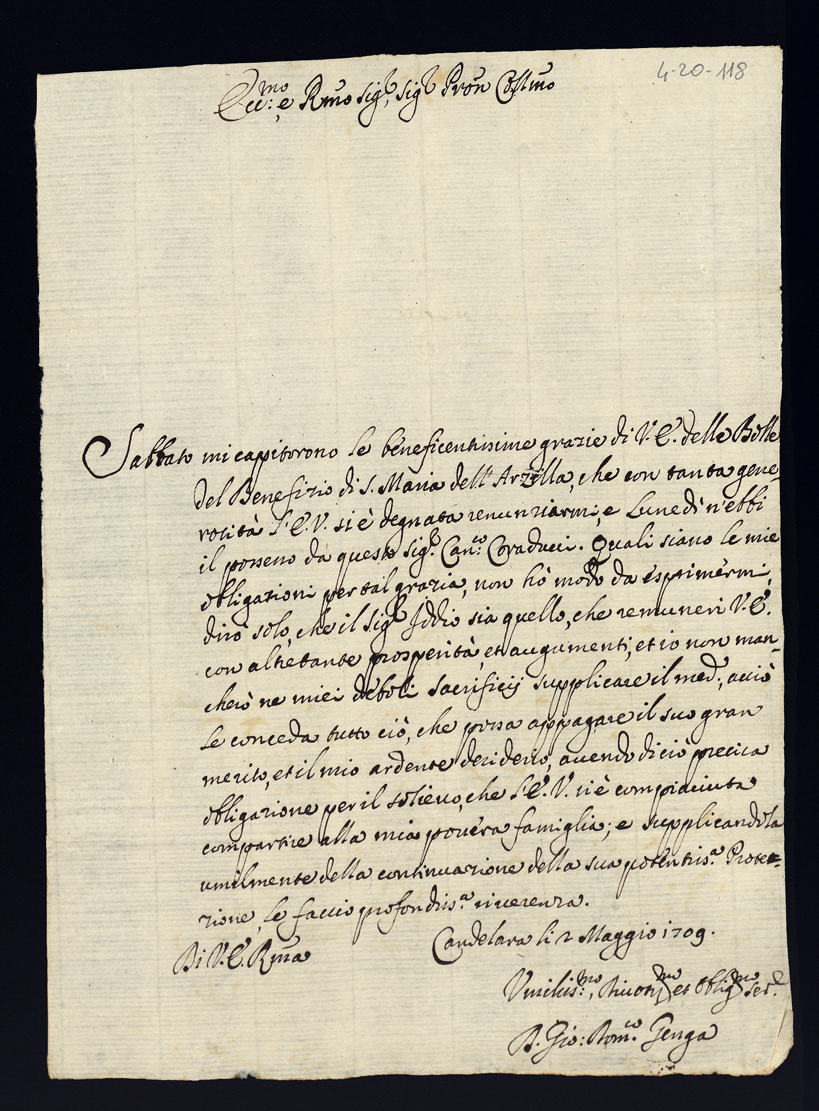 4-20-118
Ecc:mo e Rmo Sig:r, Sig:r Pron Colmo
Sabbato mi capitorono le beneficentissime grazie di V.E. delle Bolle
del Benefizio di S. Maria dell'Arzilla, che con tanta gene-
rosità l'E.V. si è degnata renunziarmi, e Lunedì n'ebbi
il possesso da questo Sig:r Can:co Coraducci. Quali siano le mie
obligazioni per tal grazia, non hò modo da esprimermi,
dirò solo, che il Sig:r Iddio sia quello, che remuneri V.E.
con altretante prosperità, et augumenti, et io non man-
cherò ne miei deboli sacrificij supplicare il med:, acciò
le conceda tutto ciò, che possa appagare il suo gran
merito, et il mio ardente desiderio, avendo di ciò precisa
obligazione per il solievo, che l'E.V. si è compiaciuta
compartire alla mia povera famiglia; e supplicandola
umilmente della continuazione della sua potentis:a Protez-
zione, le faccio profondis:a riverenza.
Candelara li 2 Maggio 1709.
Di V.E. Rma
Umilis:mo, Divotis:mo et Oblig:mo Ser:e
D. Gio: Dom:co Genga